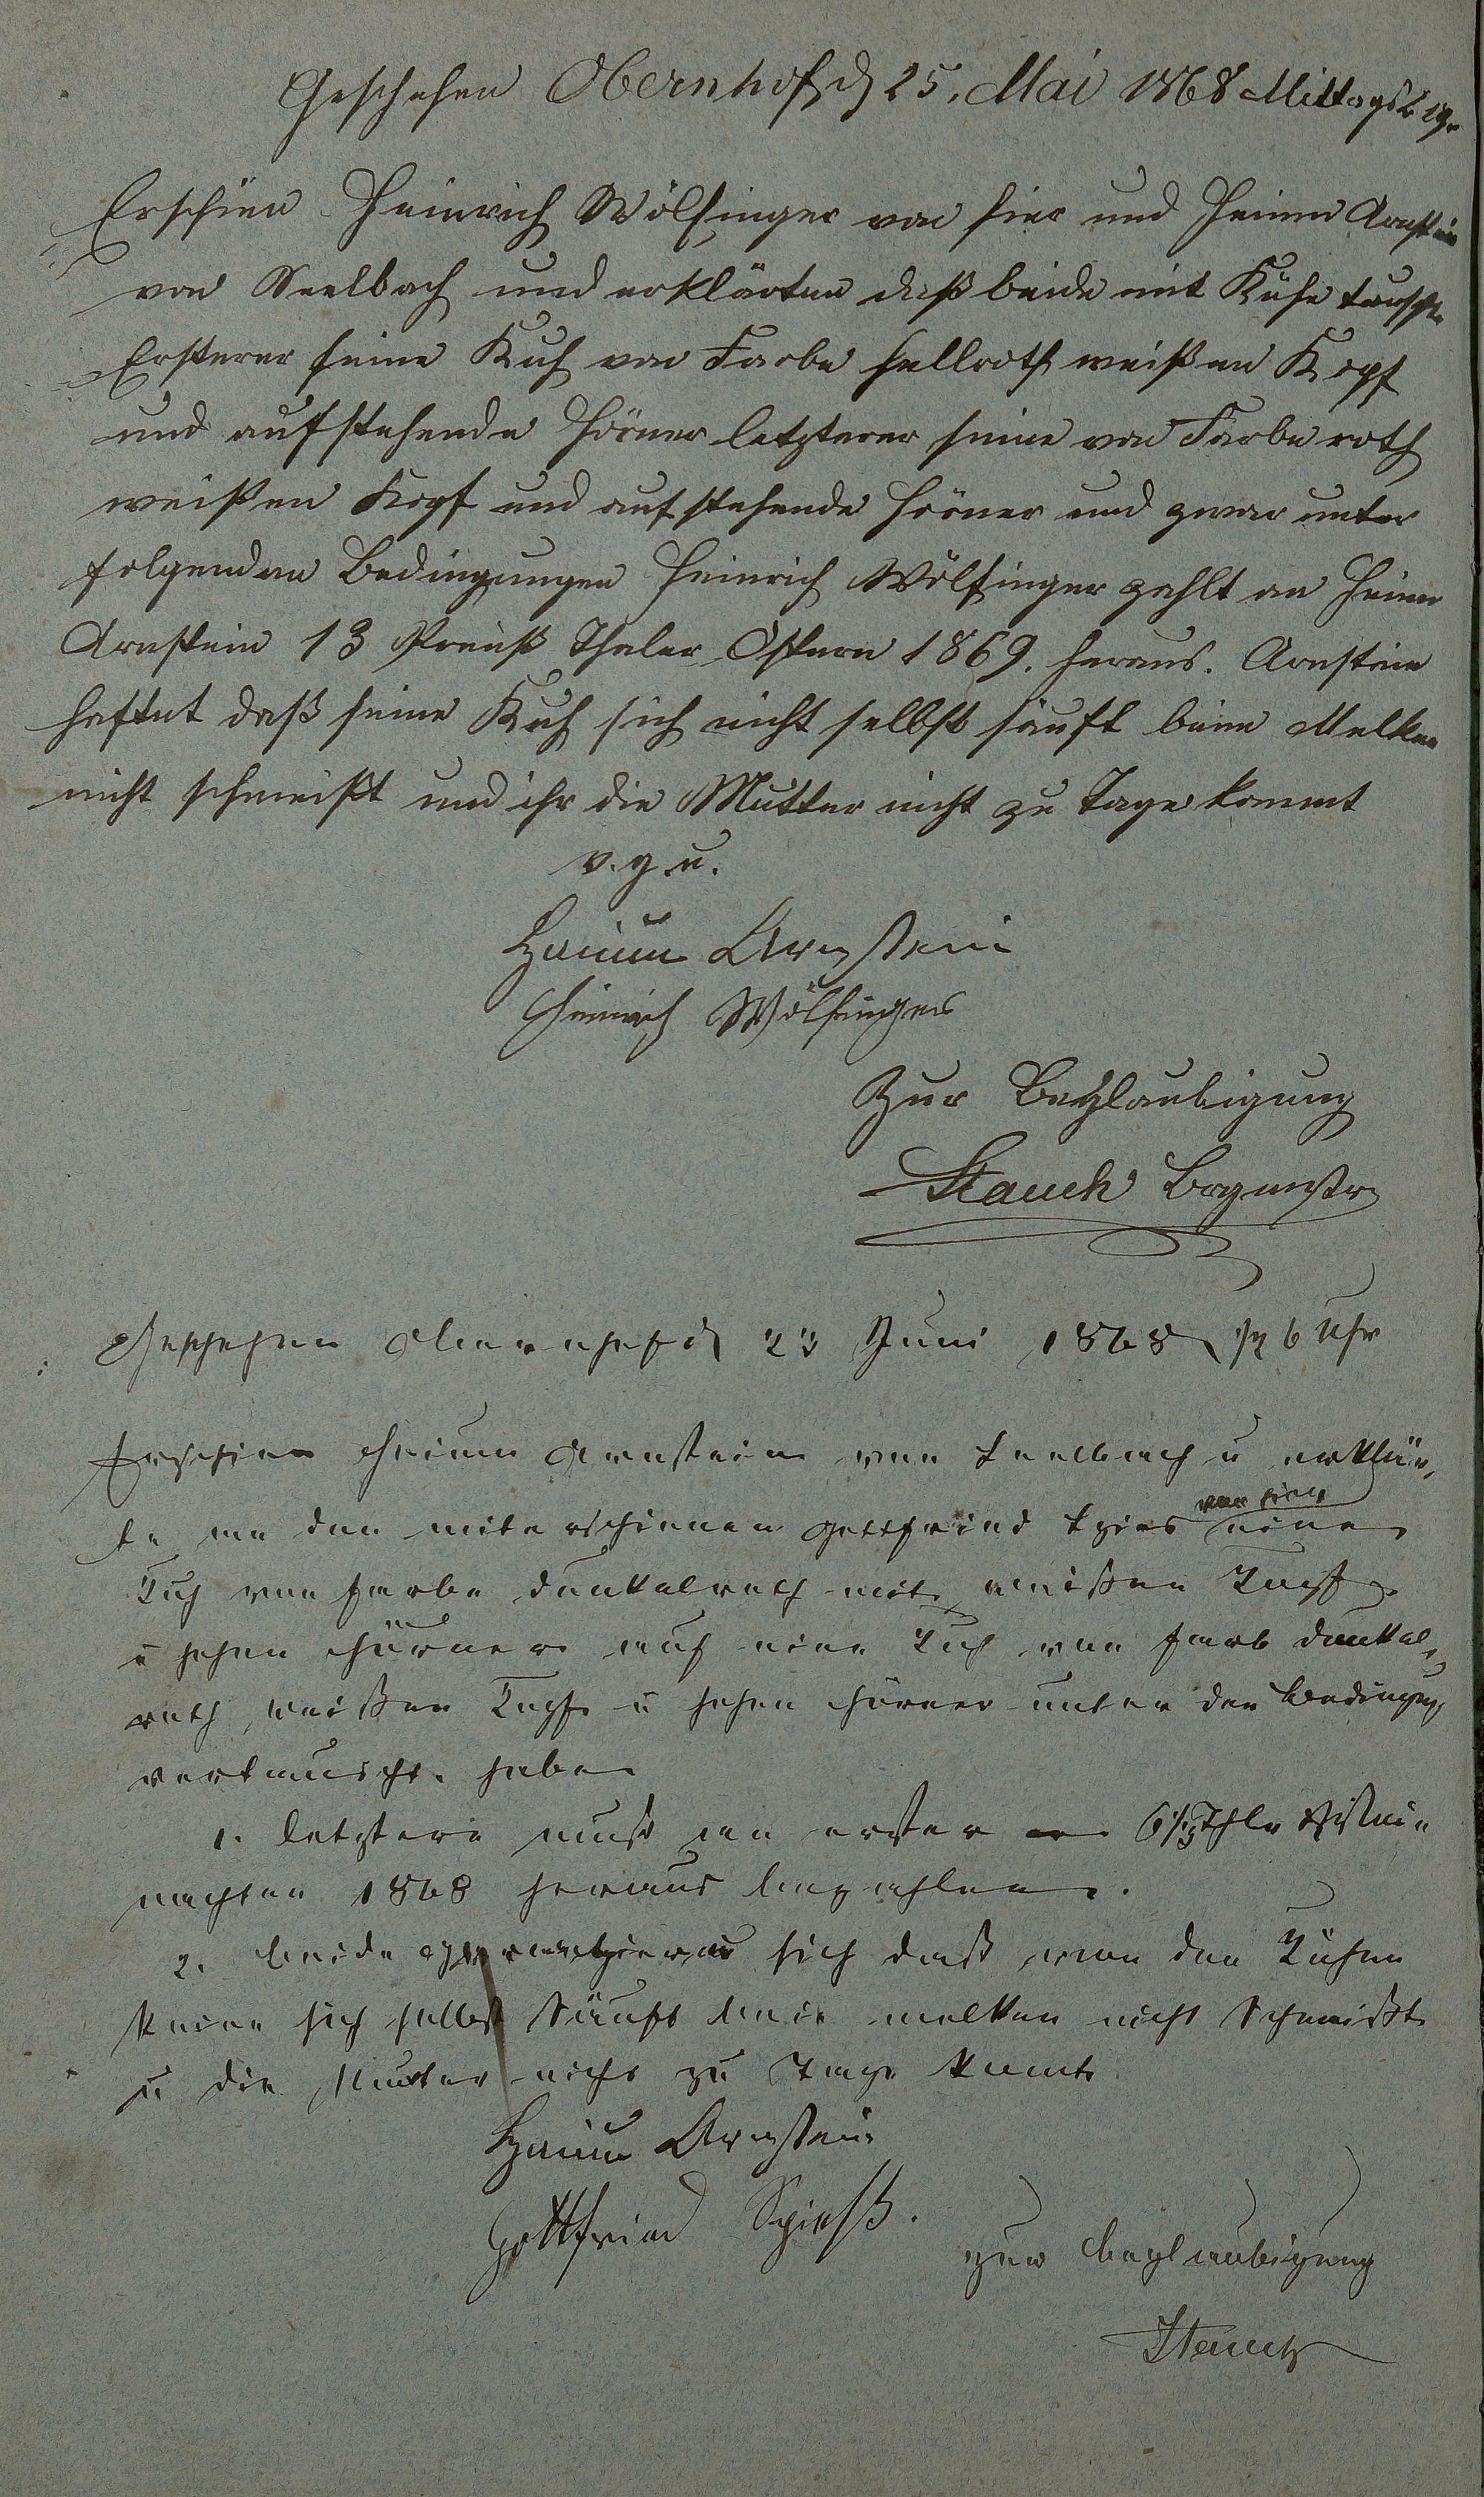 Geschehen Obernhof d 25. Mai 1868 Mittags
Erschien Heinrich Wölfinger von hier und Heium Arnstein
von Seelbach und erklärten daß beide mit Kühe tauschte
Ersterer seine Kuh von Farbe hellroth weißen Kopf
und aufstehende Hörner letzterer seine von Farbe roth
weißen Kopf und aufstehende Hörner und zwar unter
folgenden Bedingungen Heinrich Wölfinger zahlt an Heium
Arnstein 13 Preuß Thaler Ostern 1869. heraus. Arnstein
haftet daß seine Kuh sich nicht selbst säuft beim Melken
nicht schmeißt und ihr die Mutter nicht zu Tage kommt
v. g. u.
Haium Arnstein
Heinrich Wölfinger
Zur Beglaubigung
Stauch Brgmstr
Geschehen Obernhof d 23 Juni 1868 6 Uhr
Erschien Heium Arnstein von Seelbach u erklär-
te an den miterschienen Gottfried Spies von hier eine
Kuh von Farbe dunkelroth mit weißen Kopf
u hohen Hörner auf eine Kuh von Farb dunkel-
roth, weißen Kopf u hohen Hörner unter der Bedingung
vertauscht haben
1. letztere muß an erster 6 1/3 Thlr Weih
nachten 1868 heraus bezahlen.
2. beide garantieren sich daß von den Kühen
keine sich selbst Säuft beim melken nicht Schmeißt
u die Mutter nicht zu Tage komt
Haium Arnstein
Gottfried Spieß.
zur Beglaubigung
Stauch